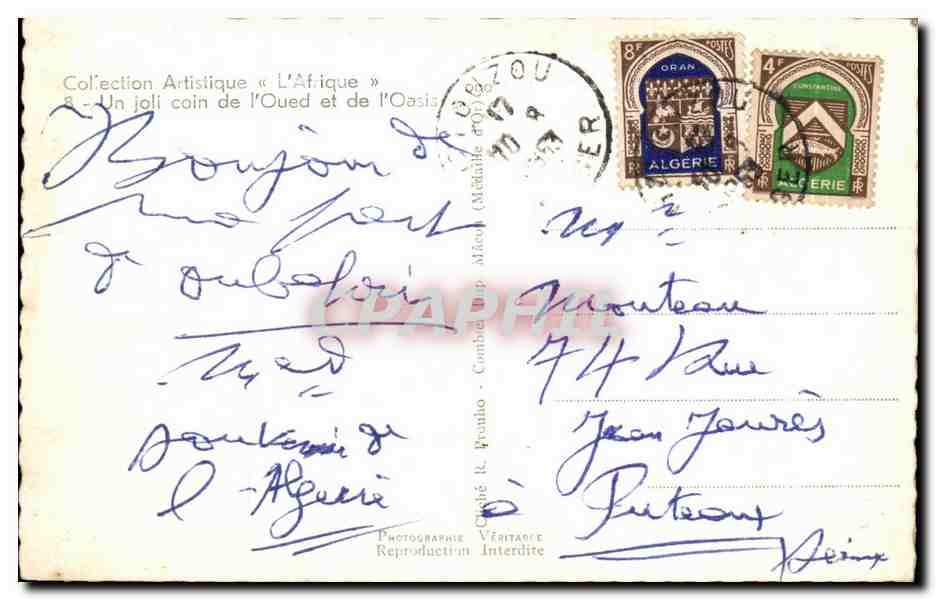 Collection Artistique « L'Afrique »
8 - Un joli coin de l'Oued et de l'Oasis
Bonjour de
ma part
de
souvenir de
l'Algerie
OUZOU
17
10 9
8F POSTES
ORAN
ALGÉRIE
RF
4F POSTES
CONSTANTINE
ALGÉRIE
RF
Mr
Mouteau
74 Rue
Jean Jaurès
à Puteaux
Seine
Cliché R. Prouho - Combier Imp. Mâcon (Médaille d'Or)
CPAPHIL
PHOTOGRAPHIE VÉRITABLE
Reproduction Interdite